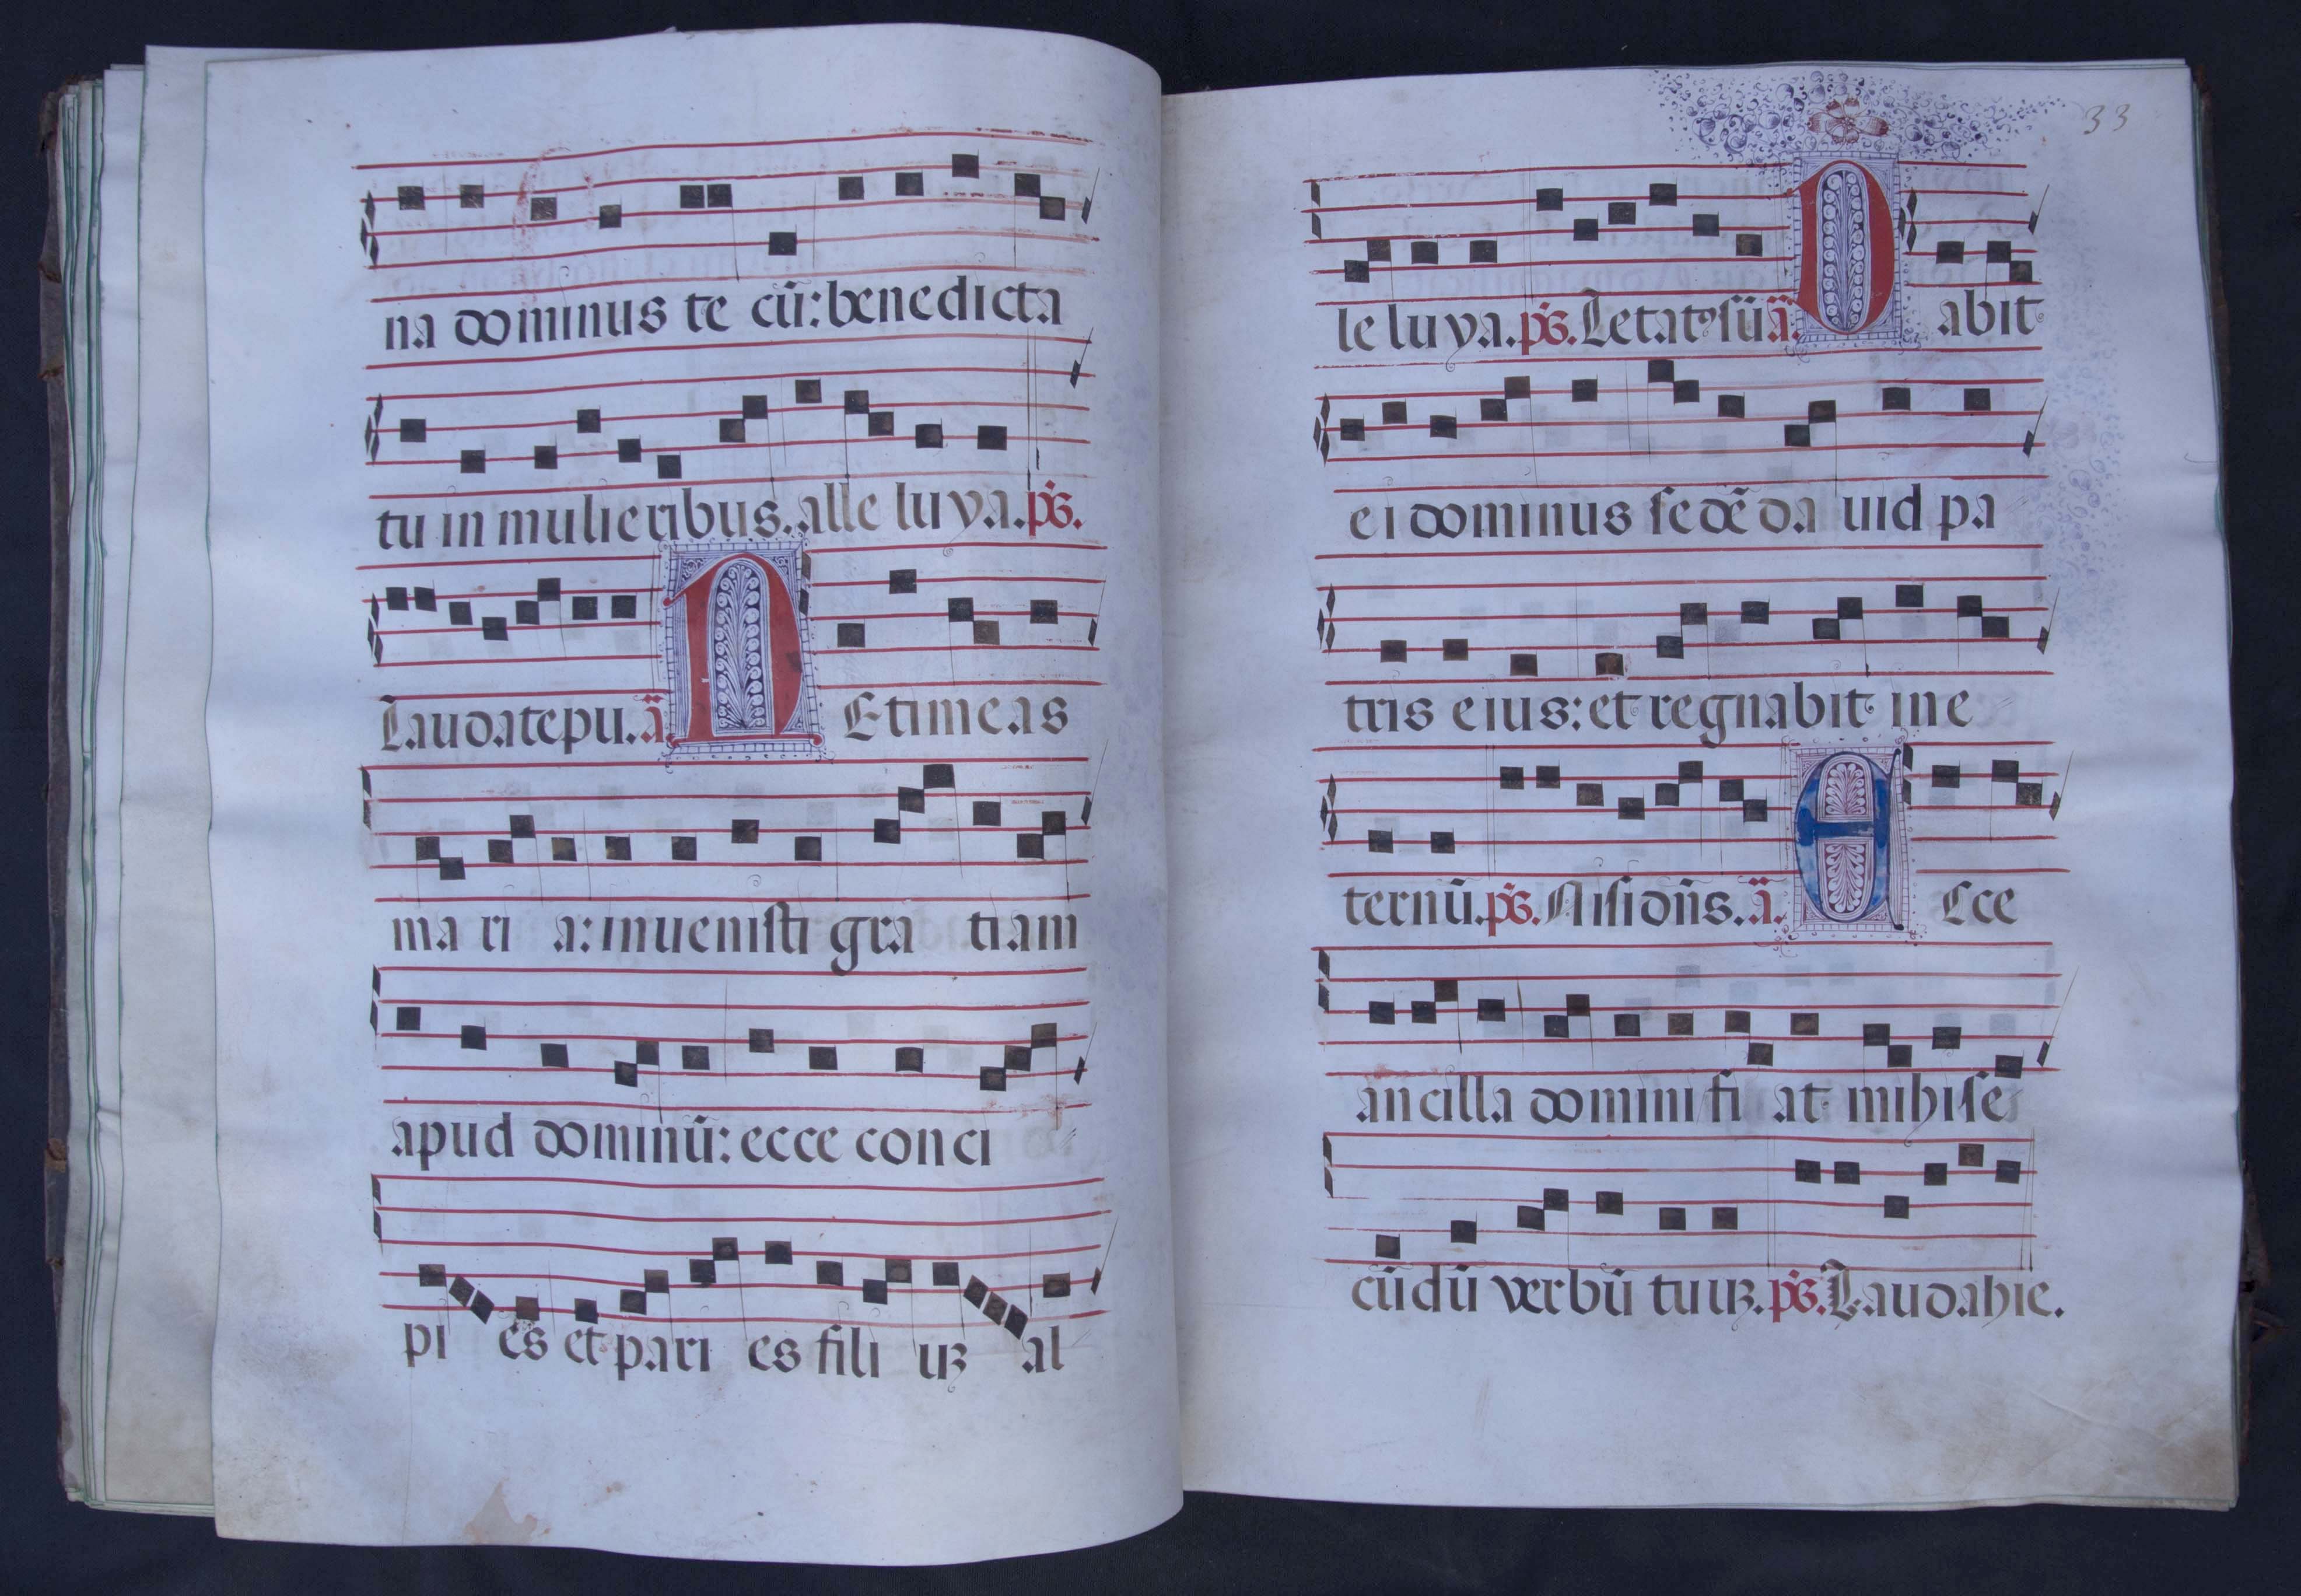 na dominus te cū: benedicta
tu in mulieribus. alle luya. p̄s.
Laudate pu. ā. N Etimeas
ma ri a: inuenisti gra tiam
apud dominū: ecce conci
pi es et pari es fili uꝫ al
33
le luya. p̄s. Letatꝰ sū ā. D abit
ei dominus sedē da uid pa
tris eius: et regnabit in e
ternū. p̄s. Nisi dn̄s. ā. E Cce
ancilla domini fi at mihi se
cūdū verbū tuuꝫ. p̄s. Lauda hie.